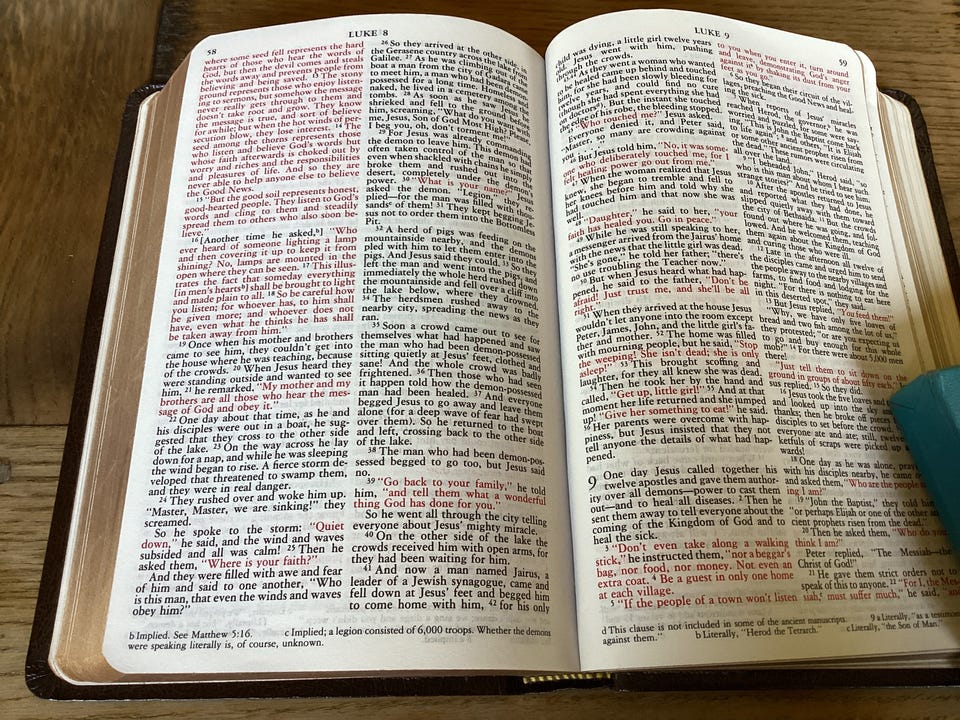 58
LUKE 8
where some seed fell represents the hard
hearts of those who hear the words of
God, but then the devil comes and steals
the words away and prevents people from
believing and being saved. 13 The stony
ground represents those who enjoy listen-
ing to sermons, but somehow the message
never really gets through to them and
doesn't take root and grow. They know
the message is true, and sort of believe
for awhile; but when the hot winds of per-
secution blow, they lose interest. 14 The
seed among the thorns represents those
who listen and believe God's words but
whose faith afterwards is choked out by
worry and riches and the responsibilities
and pleasures of life. And so they are
never able to help anyone else to believe
the Good News.
15 "But the good soil represents honest,
good-hearted people. They listen to God's
words and cling to them and steadily
spread them to others who also soon be-
lieve."
16 [Another time he asked,b] "Who
ever heard of someone lighting a lamp
and then covering it up to keep it from
shining? No, lamps are mounted in the
open where they can be seen. 17 This illus-
trates the fact that someday everything
[in men's hearts] shall be brought to light
and made plain to all. 18 So be careful how
you listen; for whoever has, to him shall
be given more; and whoever does not
have, even what he thinks he has shall
be taken away from him."
19 Once when his mother and brothers
came to see him, they couldn't get into
the house where he was teaching, because
of the crowds. 20 When Jesus heard they
were standing outside and wanted to see
him, 21 he remarked, "My mother and my
brothers are all those who hear the mes-
sage of God and obey it."
22 One day about that time, as he and
his disciples were out in a boat, he sug-
gested that they cross to the other side
of the lake. 23 On the way across he lay
down for a nap, and while he was sleeping
the wind began to rise. A fierce storm de-
veloped that threatened to swamp them,
and they were in real danger.
24 They rushed over and woke him up.
"Master, Master, we are sinking!" they
screamed.
So he spoke to the storm: "Quiet
down," he said, and the wind and waves
subsided and all was calm! 25 Then he
asked them, "Where is your faith?"
And they were filled with awe and fear
of him and said to one another, "Who
is this man, that even the winds and waves
obey him?"
26 So they arrived at the other side, in
the Gerasene country across the lake from
Galilee. 27 As he was climbing out of the
boat a man from the city of Gadara came
to meet him, a man who had been demon-
possessed for a long time. Homeless and
naked, he lived in a cemetery among the
tombs. 28 As soon as he saw Jesus he
shrieked and fell to the ground before
him, screaming, "What do you want with
me, Jesus, Son of God Most High? Please,
I beg you, oh, don't torment me!"
29 For Jesus was already commanding
the demon to leave him. This demon had
often taken control of the man so that
even when shackled with chains he simply
broke them and rushed out into the
desert, completely under the demon's
power. 30 "What is your name?" Jesus
asked the demon. "Legion," they re-
plied—for the man was filled with thou-
sandsc of them! 31 They kept begging Je-
sus not to order them into the Bottomless
Pit.
32 A herd of pigs was feeding on the
mountainside nearby, and the demons
pled with him to let them enter into the
pigs. And Jesus said they could. 33 So they
left the man and went into the pigs, and
immediately the whole herd rushed down
the mountainside and fell over a cliff into
the lake below, where they drowned.
34 The herdsmen rushed away to the
nearby city, spreading the news as they
ran.
35 Soon a crowd came out to see for
themselves what had happened and saw
the man who had been demon-possessed
sitting quietly at Jesus' feet, clothed and
sane! And the whole crowd was badly
frightened. 36 Then those who had seen
it happen told how the demon-possessed
man had been healed. 37 And everyone
begged Jesus to go away and leave them
alone (for a deep wave of fear had swept
over them). So he returned to the boat
and left, crossing back to the other side
of the lake.
38 The man who had been demon-pos-
sessed begged to go too, but Jesus said
no.
39 "Go back to your family," he told
him, "and tell them what a wonderful
thing God has done for you."
So he went all through the city telling
everyone about Jesus' mighty miracle.
40 On the other side of the lake the
crowds received him with open arms, for
they had been waiting for him.
41 And now a man named Jairus, a
leader of a Jewish synagogue, came and
fell down at Jesus' feet and begged him
to come home with him, 42 for his only
b Implied. See Matthew 5:16. c Implied; a legion consisted of 6,000 troops. Whether the demons
were speaking literally is, of course, unknown.
LUKE 9
59
child was dying, a little girl twelve years
old. Jesus went with him, pushing
through the crowds.
43 As they went a woman who wanted
to be healed came up behind and touched
him, for she had been slowly bleeding for
twelve years, and could find no cure
(though she had spent everything she had
on doctorsd). But the instant she touched
the edge of his robe, the bleeding stopped.
45 "Who touched me?" Jesus asked.
Everyone denied it, and Peter said,
"Master, so many are crowding against
you. . . ."
46 But Jesus told him, "No, it was some-
one who deliberately touched me, for I
felt healing power go out from me."
47 When the woman realized that Jesus
knew, she began to tremble and fell to
her knees before him and told why she
had touched him and that now she was
well.
48 "Daughter," he said to her, "your
faith has healed you. Go in peace."
49 While he was still speaking to her,
a messenger arrived from the Jairus' home
with the news that the little girl was dead.
"She's gone," he told her father; "there's
no use troubling the Teacher now."
50 But when Jesus heard what had hap-
pened, he said to the father, "Don't be
afraid! Just trust me, and she'll be all
right."
51 When they arrived at the house Jesus
wouldn't let anyone into the room except
Peter, James, John, and the little girl's fa-
ther and mother. 52 The home was filled
with mourning people, but he said, "Stop
the weeping! She isn't dead; she is only
asleep!" 53 This brought scoffing and
laughter, for they all knew she was dead.
54 Then he took her by the hand and
called, "Get up, little girl!" 55 And at that
moment her life returned and she jumped
up! "Give her something to eat!" he said.
56 Her parents were overcome with hap-
piness, but Jesus insisted that they not
tell anyone the details of what had hap-
pened.
9 One day Jesus called together his
twelve apostles and gave them author-
ity over all demons—power to cast them
out—and to heal all diseases. 2 Then he
sent them away to tell everyone about the
coming of the Kingdom of God and to
heal the sick.
3 "Don't even take along a walking
stick," he instructed them, "nor a beggar's
bag, nor food, nor money. Not even an
extra coat. 4 Be a guest in only one home
at each village.
5 "If the people of a town won't listen
to you when you enter it, turn around
and leave, demonstrating God's anger
against it by shaking its dust from your
feet as you go."
6 So they began their circuit of the vil-
lages, preaching the Good News and heal-
ing the sick.
7 When reports of Jesus' miracles
reached Herod, the governor, he was
worried and puzzled, for some were say-
ing, "This is John the Baptist come back
to life again"; 8 and others, "It is Elijah
or some other ancient prophet risen from
the dead." These rumors were circulating
all over the land.
9 "I beheaded John," Herod said, "so
who is this man about whom I hear such
strange stories?" And he tried to see him.
10 After the apostles returned to Jesus
and reported what they had done, he
slipped quietly away with them toward
the city of Bethsaida. 11 But the crowds
found out where he was going, and fol-
lowed. And he welcomed them, teaching
them again about the Kingdom of God
and curing those who were ill.
12 Late in the afternoon all twelve of
the disciples came and urged him to send
the people away to the nearby villages and
farms, to find food and lodging for the
night. "For there is nothing to eat here
in this deserted spot," they said.
13 But Jesus replied, "You feed them!"
"Why, we have only five loaves of
bread and two fish among the lot of us,"
they protested; "or are you expecting us
to go and buy enough for this whole
mob?" 14 For there were about 5,000 men
there!
"Just tell them to sit down on the
ground in groups of about fifty each," Je-
sus replied. 15 So they did.
16 Jesus took the five loaves and
and looked up into the sky and
thanks; then he broke off pieces
disciples to set before the crowd.
everyone ate and ate; still, twelve
ketfuls of scraps were picked up
wards!
18 One day as he was alone, pray
with his disciples nearby, he came
and asked them, "Who are the people
ing I am?"
19 "John the Baptist," they told
"or perhaps Elijah or one of the other
cient prophets risen from the dead."
20 Then he asked them, "Who do you
think I am?"
Peter replied, "The Messiah—the
Christ of God!"
21 He gave them strict orders not to
speak of this to anyone. 22 "For I, the Mes
siah,c must suffer much," he said, "and
d This clause is not included in some of the ancient manuscripts. 9 a Literally, "as a testimo
against them." b Literally, "Herod the Tetrarch." c Literally, "the Son of Man."